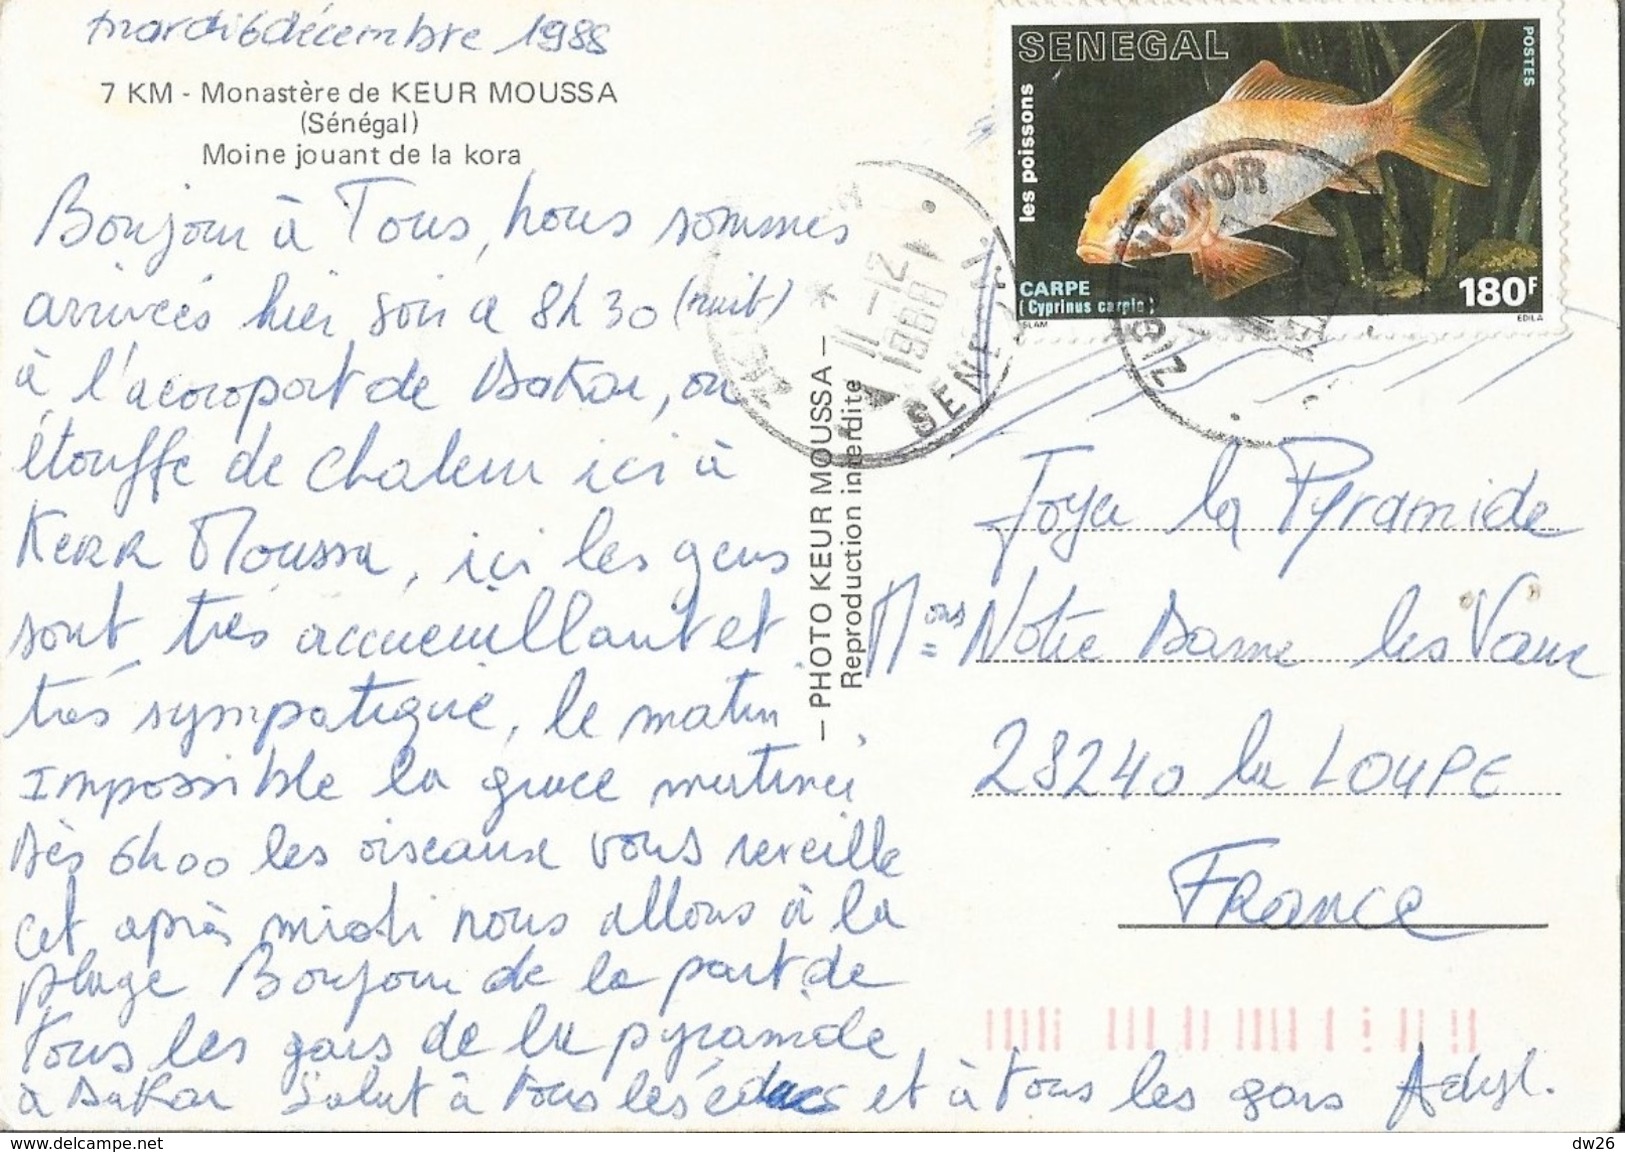 mardi 6 décembre 1988
7 KM - Monastère de KEUR MOUSSA
(Sénégal)
Moine jouant de la kora
Bonjour à Tous, nous sommes
arrivées hier soir a 8h30 (nuit)
à l'aeoroport de Dakar, on
étouffe de chaleur ici à
KERR MOUSSA, ici les gens
sont très accueuillant et
très sympatique, le matin
impossible la grace matinée
Dès 6h00 les oiseaux vous reveille
cet après midi nous allons à la
plage Bonjour de la part de
tous les gars de la pyramide
à Dakar Salut à tous les éducs et à tous les gars
— PHOTO KEUR MOUSSA —
Reproduction interdite
SENEGAL
POSTES
les poissons
CARPE
(Cyprinus carpio)
180F
EDILA
ZIGUINCHOR
11-12
1988
SENEGAL
Foyer la Pyramide
Mons Notre Dame les Vaux
28240 la LOUPE
FRANCE
dw26